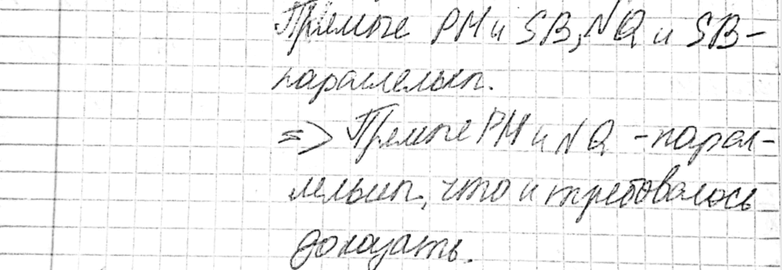 Прямые PM и SB, NQ и SB-
параллельны.
=> Прямые PM и NQ - парал-
лельны, что и требовалось
доказать.